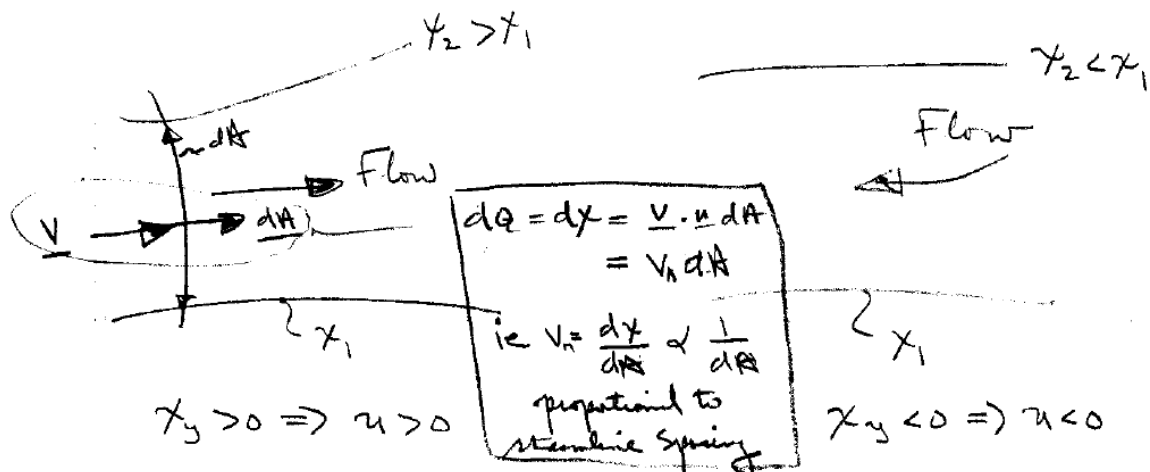 ψ₂ > ψ₁
ψ₂ < ψ₁
~dA
Flow
Flow
V dA
dQ = dψ = V · n dA
= Vₙ dA
ie Vₙ = dψ/dA ∝ 1/dA
proportional to
streamline spacing
ψ₁
ψ₁
ψ_y > 0 => u > 0
ψ_y < 0 => u < 0